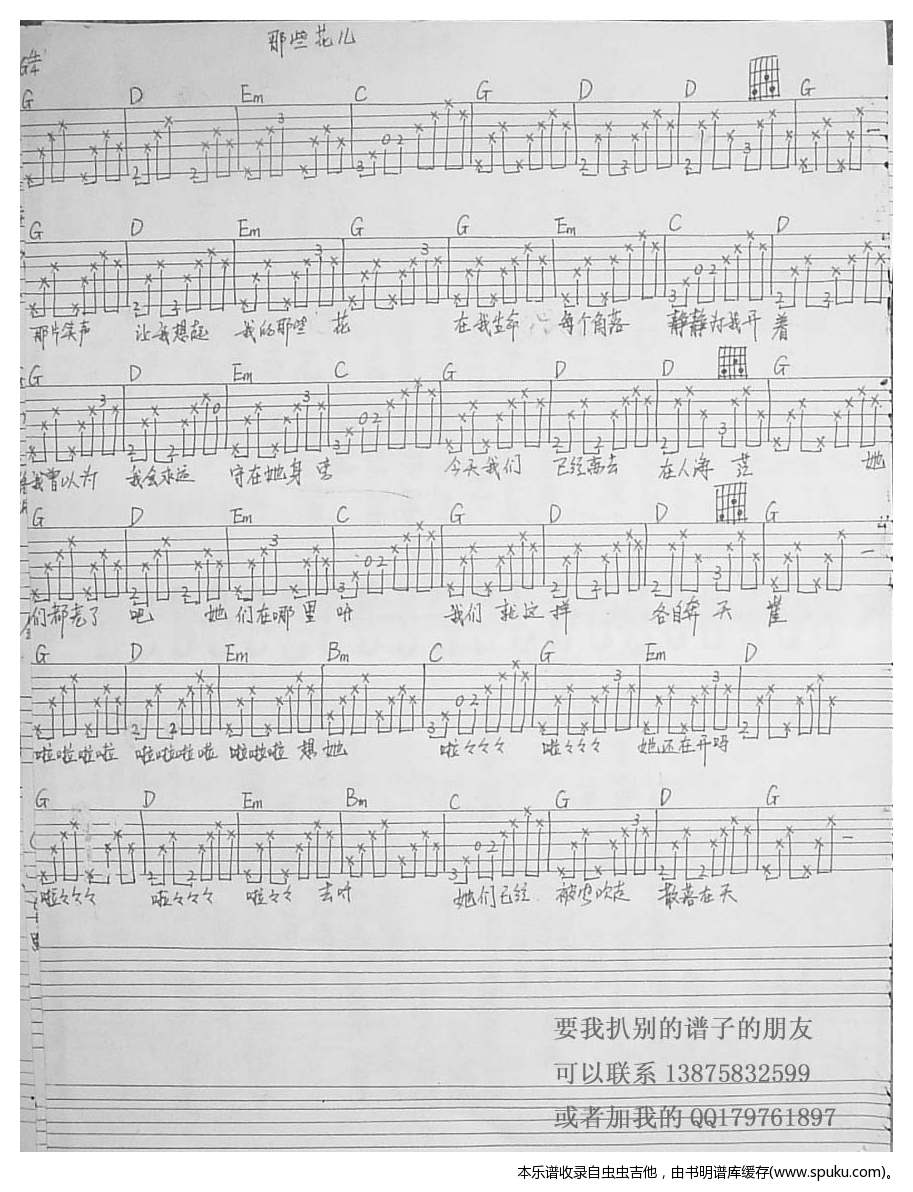 那些花儿
G 4/4
G D Em C G D D G
G D Em G G Em C D
那片笑声 让我想起 我的那些 花 在我生命 每个角落 静静为我开 着
G D Em C G D D G
我曾以为 我会永远 守在她身旁 今天我们 已经离去 在人海 茫 她
G D Em C G D D G
们都老了 吧 她们在哪里 呀 我们 就这样 各自奔 天 崖
G D Em Bm C G Em D
啦啦啦啦 啦啦啦啦 啦啦啦 想她 啦々々々 啦々々々 她还在开吗
G D Em Bm C G D G
啦々々々 啦々々々 啦々々 去呀 她们已经 被风吹走 散落在天
要我扒别的谱子的朋友
可以联系 13875832599
或者加我的 QQ179761897
本乐谱收录自虫虫吉他，由书明谱库缓存(www.spuku.com)。